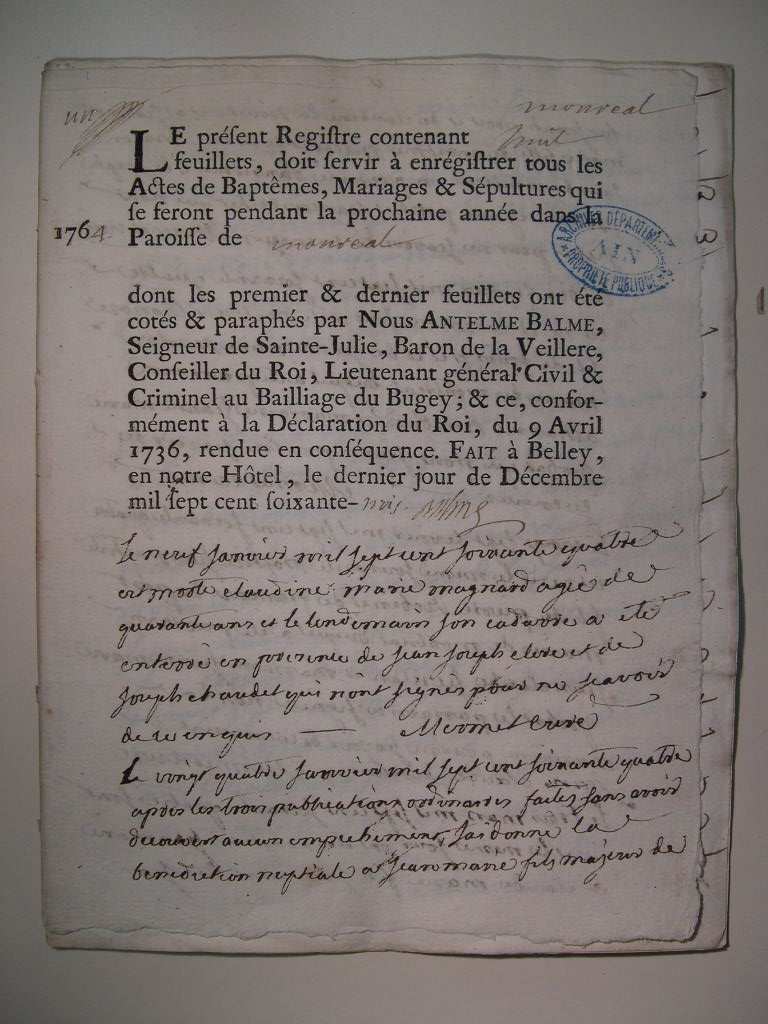 un
monreal
LE préſent Regiſtre contenant huit
feuillets, doit ſervir à enrégiſtrer tous les
Actes de Baptêmes, Mariages & Sépultures qui
ſe feront pendant la prochaine année dans la
1764 Paroiſſe de monreal
ARCHIVES DÉPARTEMENTALES
AIN
PROPRIÉTÉ PUBLIQUE
dont les premier & dernier feuillets ont été
cotés & paraphés par Nous ANTELME BALME,
Seigneur de Sainte-Julie, Baron de la Veillere,
Conſeiller du Roi, Lieutenant général Civil &
Criminel au Bailliage du Bugey; & ce, confor-
mément à la Déclaration du Roi, du 9 Avril
1736, rendue en conſéquence. FAIT à Belley,
en notre Hôtel, le dernier jour de Décembre
mil ſept cent ſoixante-trois Balme
Le neuf janvier mil sept cent soixante quatre
est morte claudine marie magnard agée de
quarante ans et le lendemain son cadavre a eté
enterré en presence de jean joseph clerc et de
joseph chaudet qui n'ont signés pour ne sçavoir
de ce enquis Mermet curé
Le vingt quatre janvier mil sept cent soixante quatre
après les trois publications ordinaires faites sans avoir
decouvert aucun empechement j'ai donné la
benediction nuptiale a jean marie fils majeur de